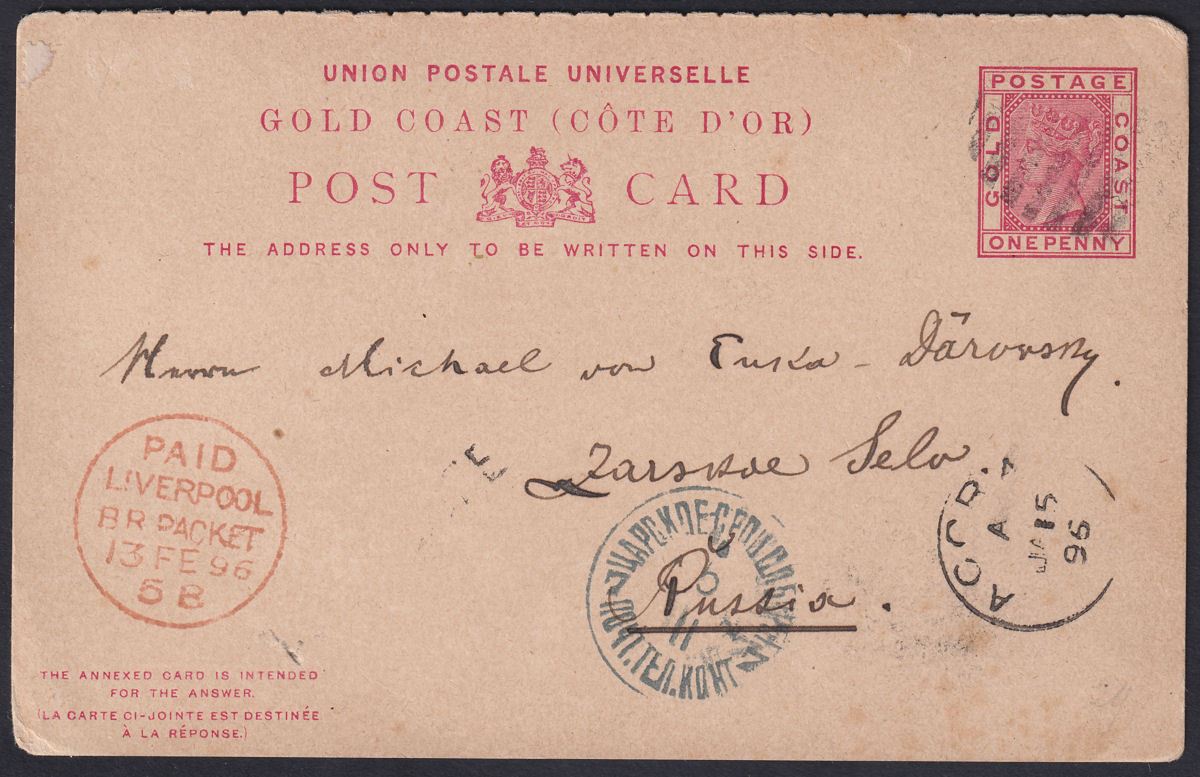 UNION POSTALE UNIVERSELLE
GOLD COAST (CÔTE D'OR)
POST CARD
THE ADDRESS ONLY TO BE WRITTEN ON THIS SIDE.
POSTAGE
GOLD COAST
ONE PENNY
Herrn Michael von Dārovsky.
Zarskoe Selo.
Russia.
PAID
LIVERPOOL
BR PACKET
13 FE 96
5B
ACCRA
A
JA 15
96
ЦАРСКОЕ СЕЛО
ПОЧТ. ТЕЛ. КОНТ
THE ANNEXED CARD IS INTENDED
FOR THE ANSWER.
(LA CARTE CI-JOINTE EST DESTINÉE
À LA RÉPONSE.)